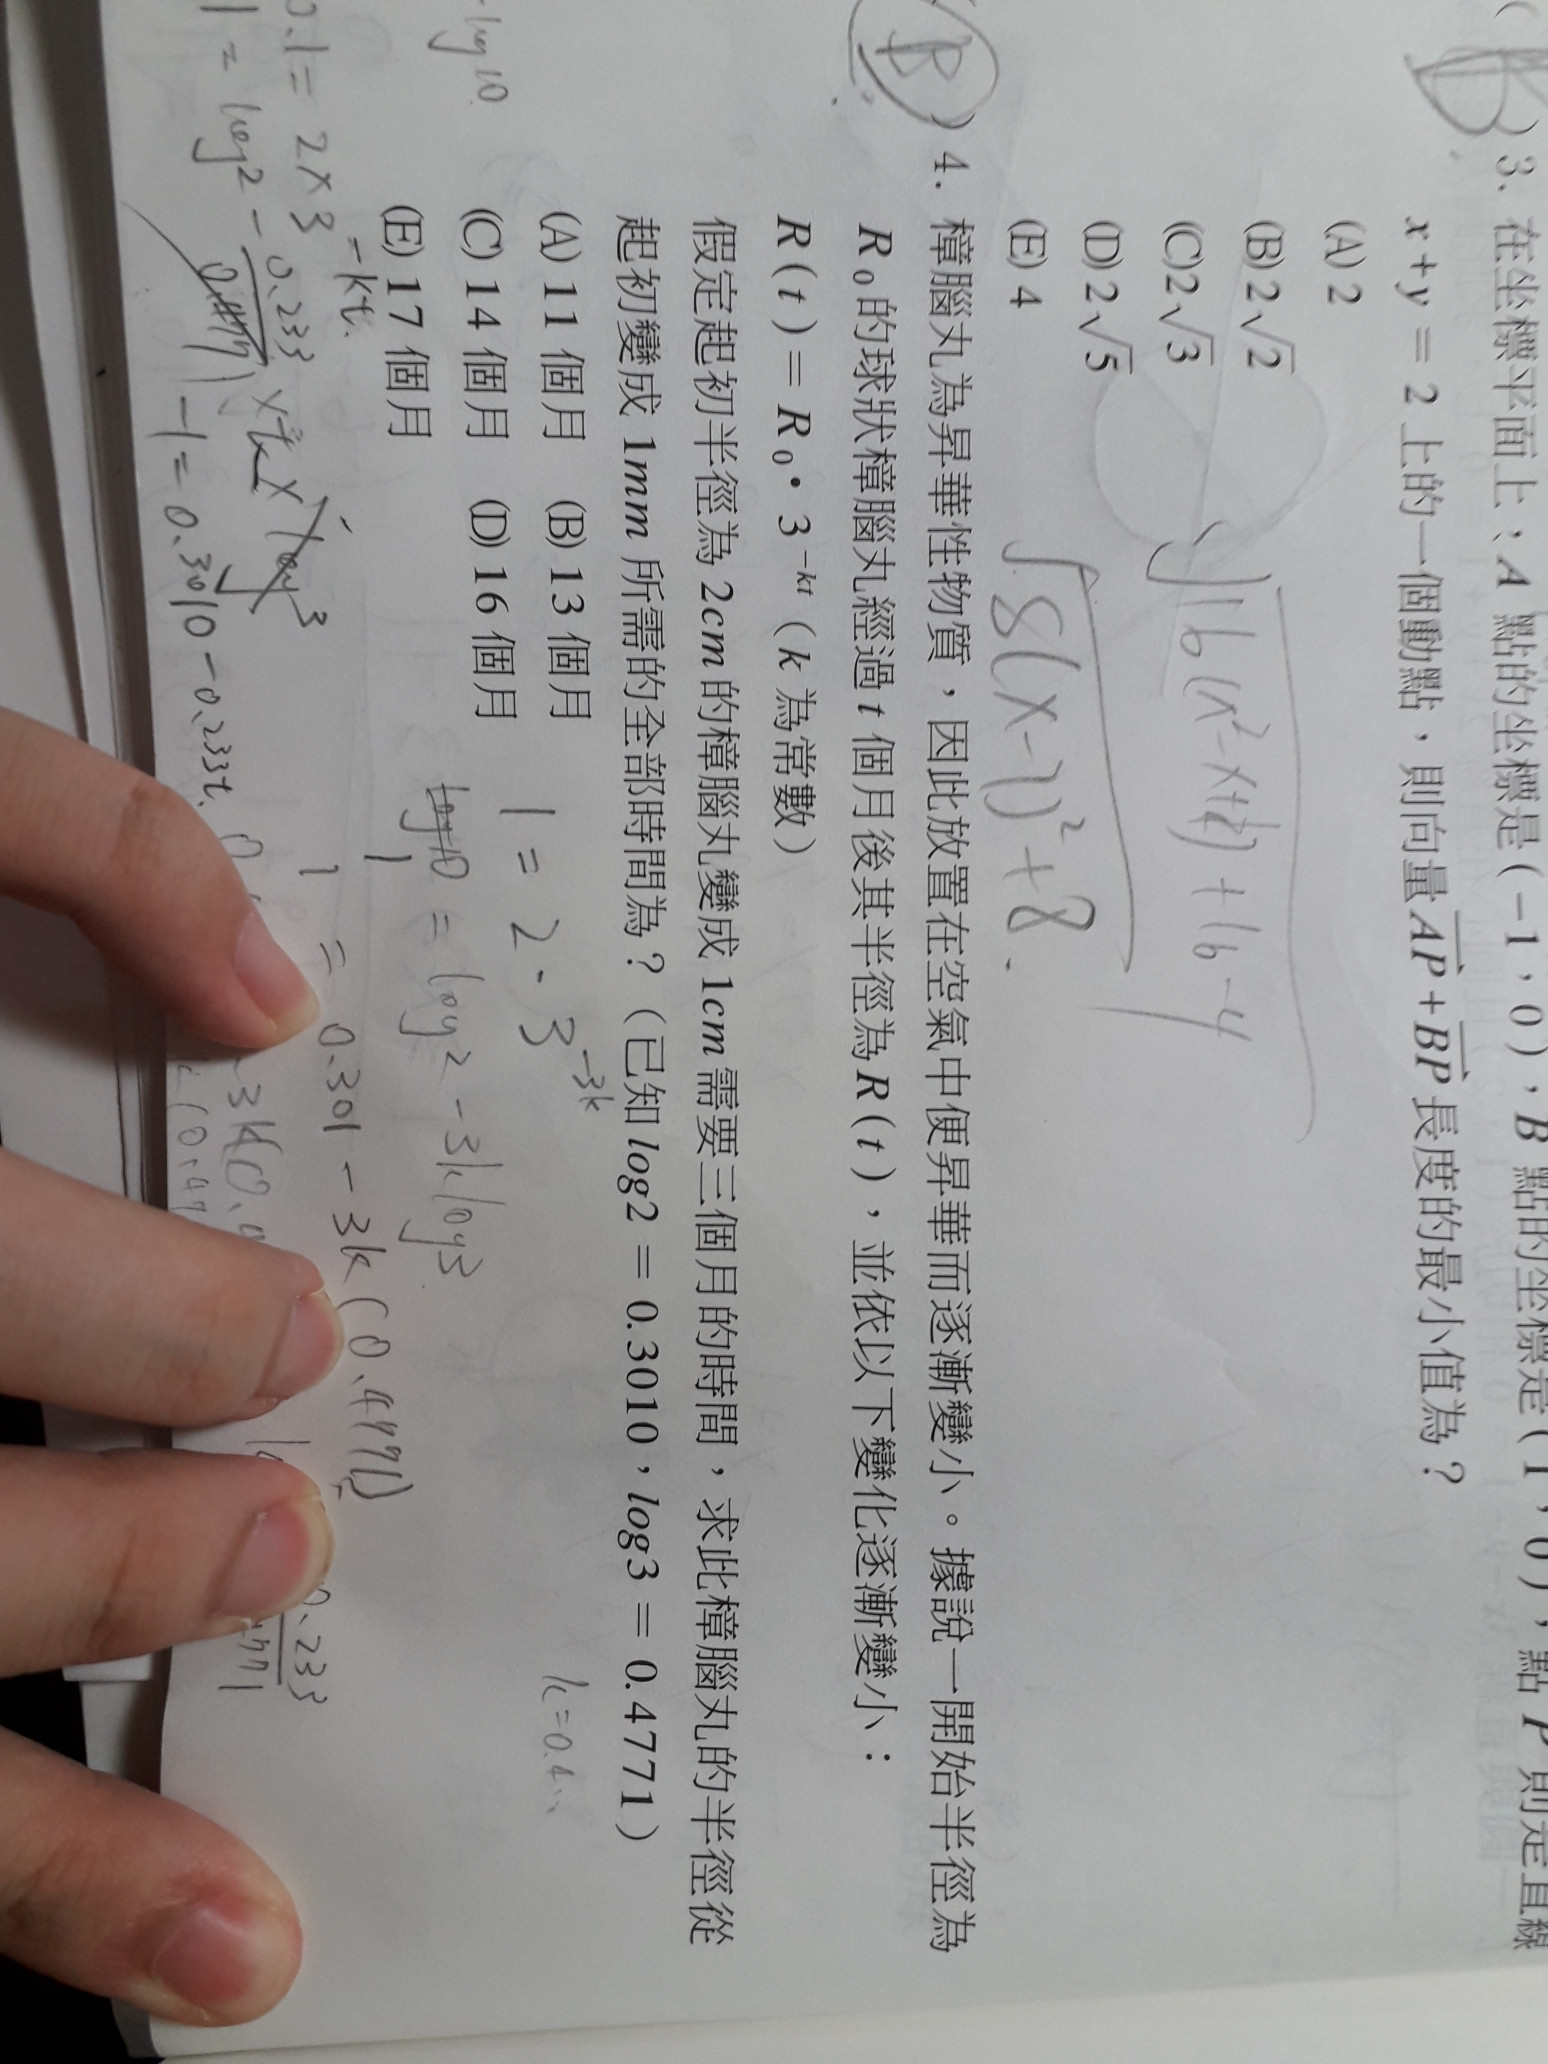 ( B ) 3. 在坐標平面上:A 點的坐標是(-1,0),B 點的坐標是(1,0),點 P 則是直線
x+y = 2 上的一個動點,則向量 AP + BP 長度的最小值為?
(A) 2
(B) 2√2
(C) 2√3
(D) 2√5
(E) 4
√8(x-1)²+8
( B ) 4. 樟腦丸為昇華性物質,因此放置在空氣中便昇華而逐漸變小。據說一開始半徑為
R₀的球狀樟腦丸經過 t 個月後其半徑為 R(t),並依以下變化逐漸變小:
R(t) = R₀・3^-kt (k 為常數)
假定起初半徑為 2cm 的樟腦丸變成 1cm 需要三個月的時間,求此樟腦丸的半徑從
起初變成 1mm 所需的全部時間為?(已知 log2 = 0.3010,log3 = 0.4771)
(A) 11 個月 (B) 13 個月
(C) 14 個月 (D) 16 個月
(E) 17 個月
1 = 2・3^-3k
1 = log2 - 3klog3
1 = 0.301 - 3k(0.4771)
0.1 = 2×3^-kt
-1 = 0.3010 - 0.233t